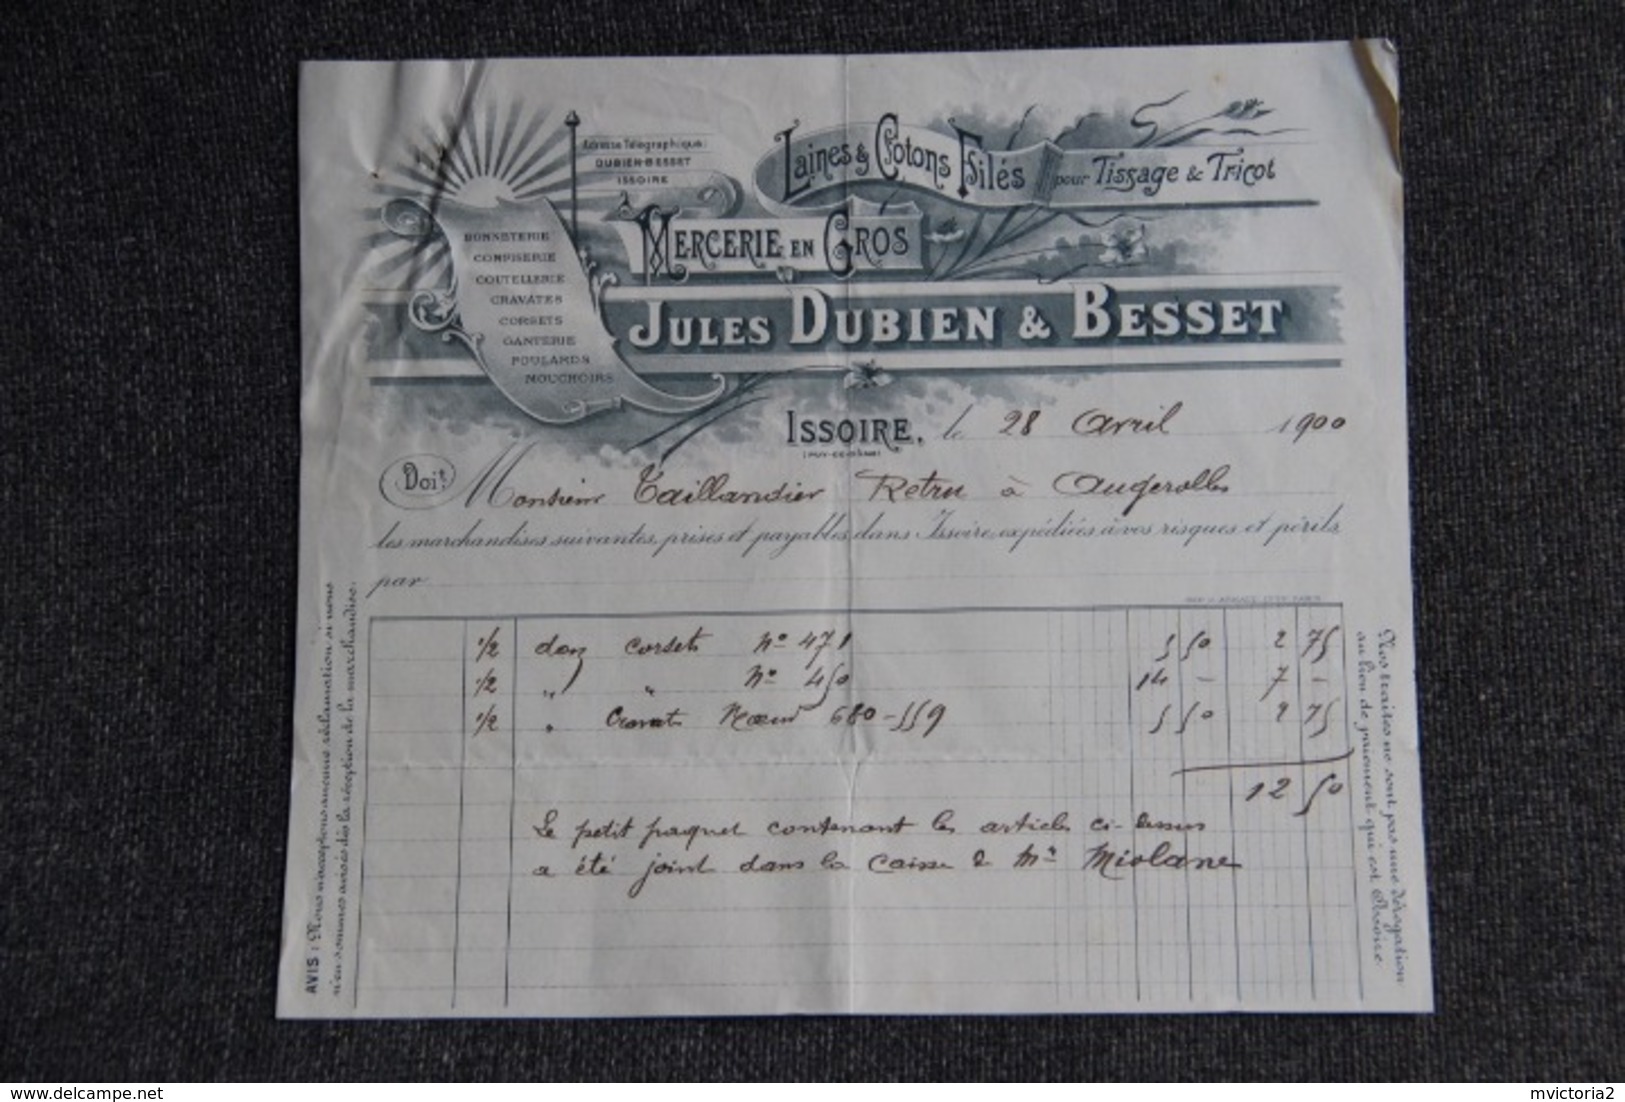 Adresse Télégraphique:
DUBIEN-BESSET
ISSOIRE
Laines & Cotons Filés pour Tissage & Tricot
Mercerie en Gros
Jules Dubien & Besset
BONNETERIE
CONFISERIE
COUTELLERIE
CRAVATES
CORSETS
GANTERIE
FOULARDS
MOUCHOIRS
ISSOIRE, le 28 Avril 1900
(PUY-DE-DÔME)
Doit Monsieur Taillandier Retru à Augerolles
les marchandises suivantes, prises et payables dans Issoire, expédiées à vos risques et périls
par
1/2 douz corsets No 471 5 50 2 75
1/2 " " No 450 14 - 7 -
1/2 " Cravat Noeud 680-559 5 50 2 75
12 50
Le petit paquet contenant les articles ci-dessus
a été joint dans la caisse de Mr Miolane
AVIS : Nous n'acceptons aucune réclamation si nous
n'en sommes avisés dès la réception de la marchandise.
Nos traites ne sont pas une dérogation
au lieu de paiement qui est Issoire.
delcampe.net
mvictoria2